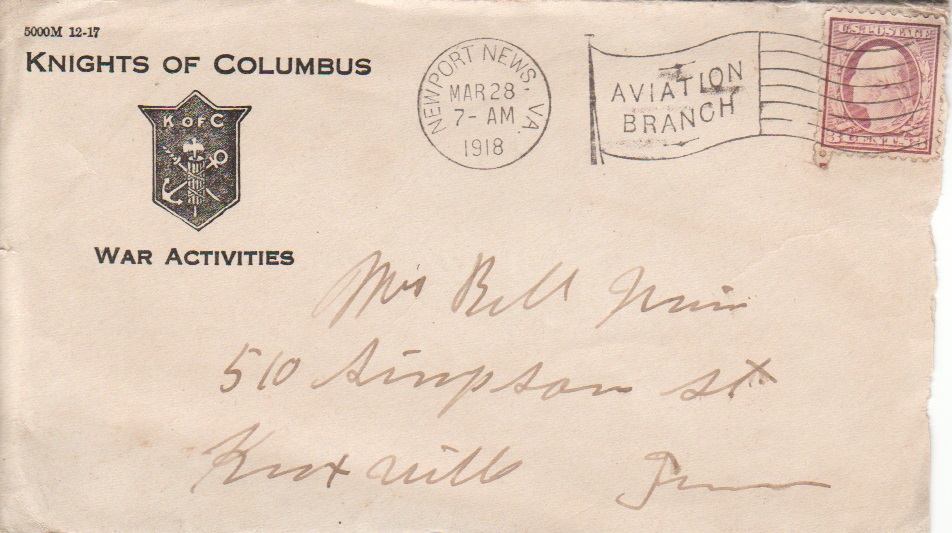 5000M 12-17
KNIGHTS OF COLUMBUS
K OF C
WAR ACTIVITIES
NEWPORT NEWS, VA.
MAR 28
7- AM
1918
AVIATION
BRANCH
U.S. POSTAGE
3 CENTS 3
Mrs Bell
510 Simpson st
Knoxville Tenn